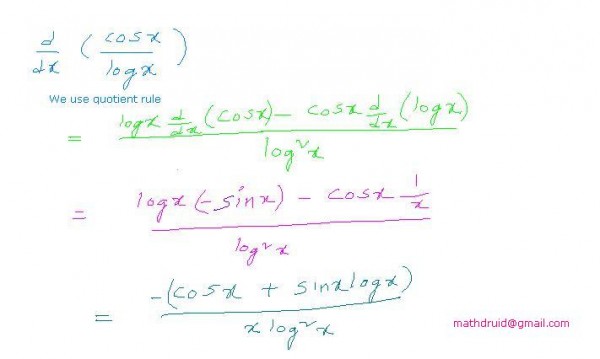 d/dx (cosx/logx)
We use quotient rule
= (logx d/dx (cosx) - cosx d/dx (logx))/log²x
= (logx (-sinx) - cosx 1/x)/log²x
= -(cosx + sinxlogx)/x log²x
mathdruid@gmail.com